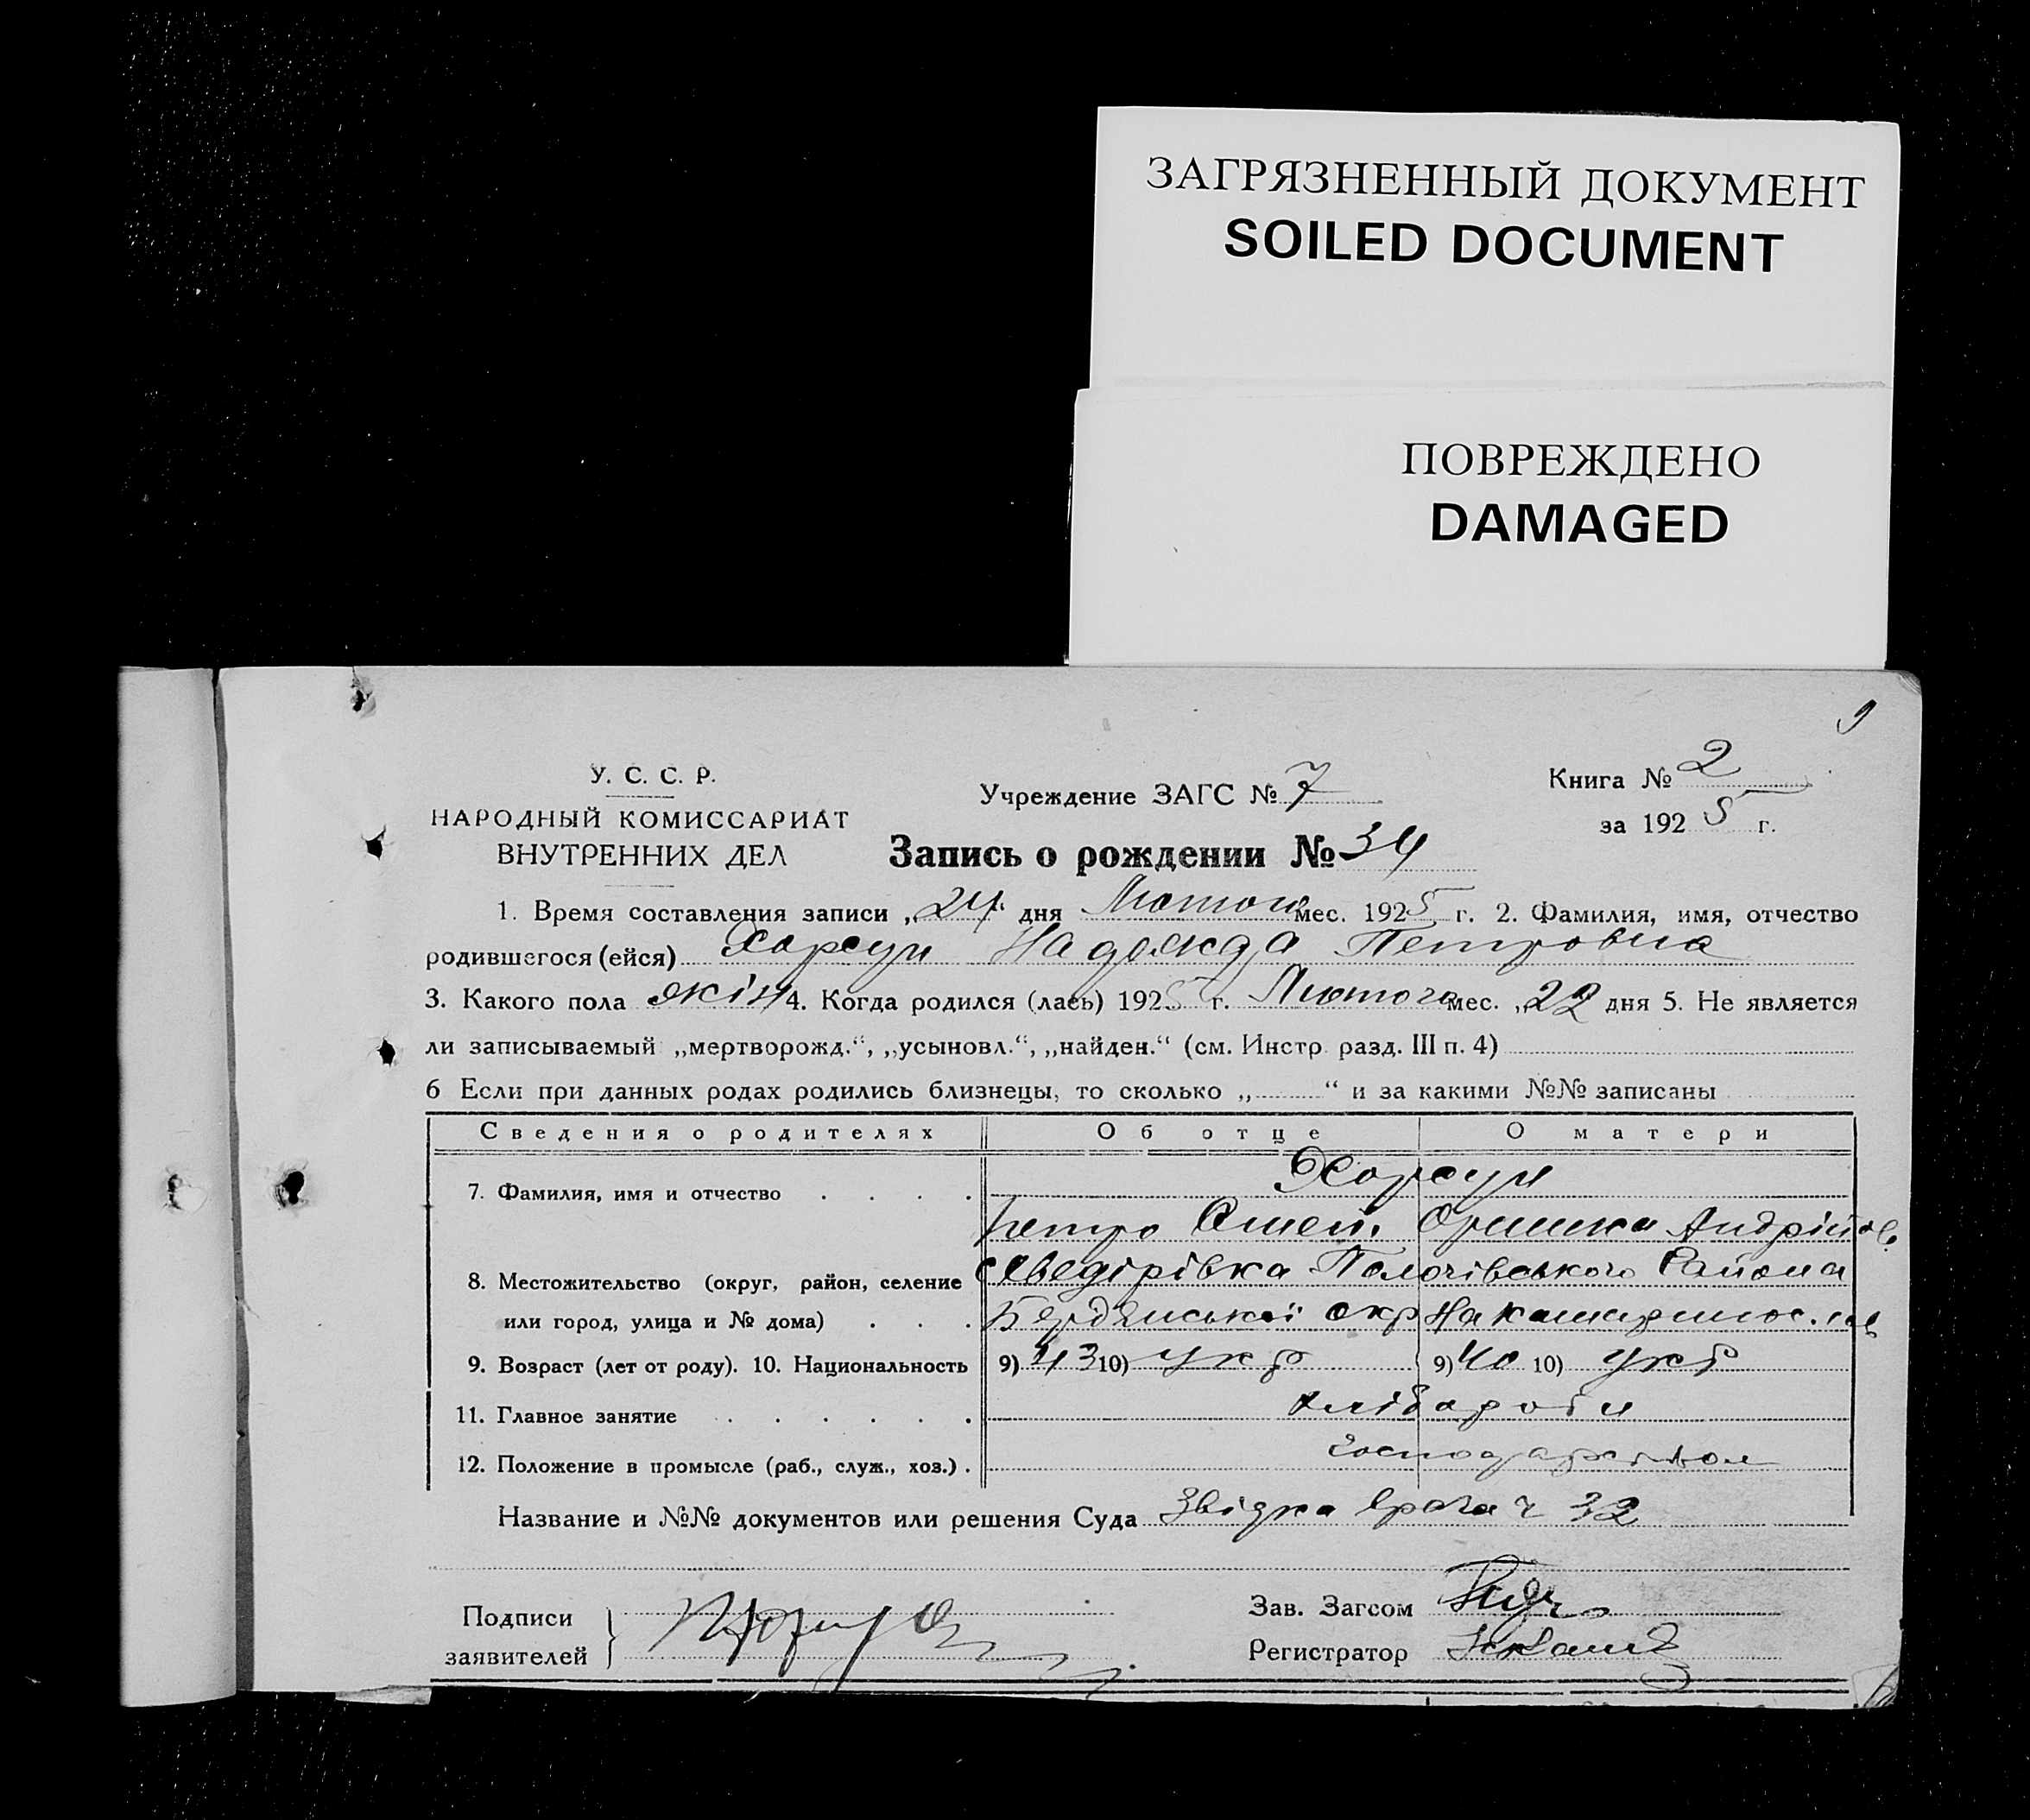 ЗАГРЯЗНЕННЫЙ ДОКУМЕНТ
SOILED DOCUMENT
ПОВРЕЖДЕНО
DAMAGED
9
У. С. С. Р.
НАРОДНЫЙ КОМИССАРИАТ
ВНУТРЕННИХ ДЕЛ
Учреждение ЗАГС № 7
Книга № 2
за 1925 г.
Запись о рождении № 34
1. Время составления записи „24“ дня Лютого мес. 1925 г. 2. Фамилия, имя, отчество
родившегося (ейся) Хорсун Надежда Петровна
3. Какого пола жін 4. Когда родился (лась) 1925 г. Лютого мес. „22 дня 5. Не является
ли записываемый „мертворожд.“, „усыновл.“, „найден.“ (см. Инстр. разд. III п. 4)
6 Если при данных родах родились близнецы, то сколько „ “ и за какими №№ записаны
Сведения о родителях Об отце О матери
7. Фамилия, имя и отчество Хорсун
Петро Омел. Оришка Андрійов.
8. Местожительство (округ, район, селение Пологівського Района
или город, улица и № дома) Бердянської окр
9. Возраст (лет от роду). 10. Национальность 9) 43 10) укр 9) 40 10) укр
11. Главное занятие хлібороби
12. Положение в промысле (раб., служ., хоз.)
Название и №№ документов или решения Суда Звідка врача ч 32
Подписи
заявителей
Зав. Загсом
Регистратор